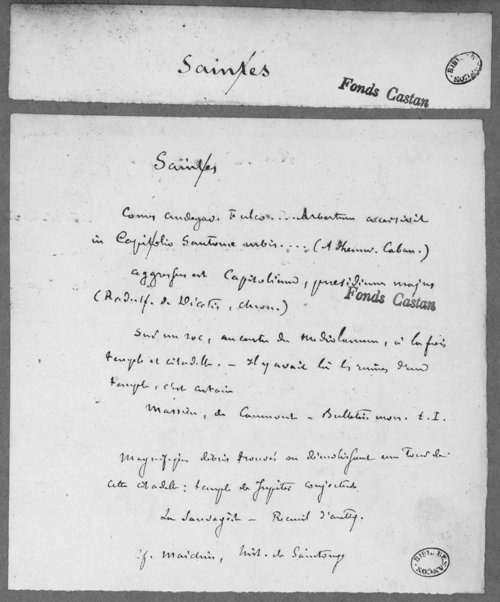 Saintes
Fonds Castan
Saintes
Comes andegav. Fulco .... Arbertum accersivit
in Capitolio Santonæ urbis .... (Adhemar. Caban.)
aggressus est Capitolium, præsidium majus
(Radulf. de Diceto, chron.)
Fonds Castan
Sur un roc, au centre de Mediolanum, à la fois
temple et citadelle. — Il y avait là les ruines d'un
temple, c'est certain
Massiou, de Caumont — Bulletin mon. t. I.
Magnifiques débris trouvés en démolissant une tour de
cette citadelle : temple de Jupiter conjecturé
La Sauvagère — Recueil d'antiq.
cf. Maichin, hist. de Saintonge
BIBL. BESANÇON